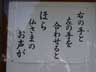 右の手と
左の手を
合わせると
ほら
仏さまの
お声が